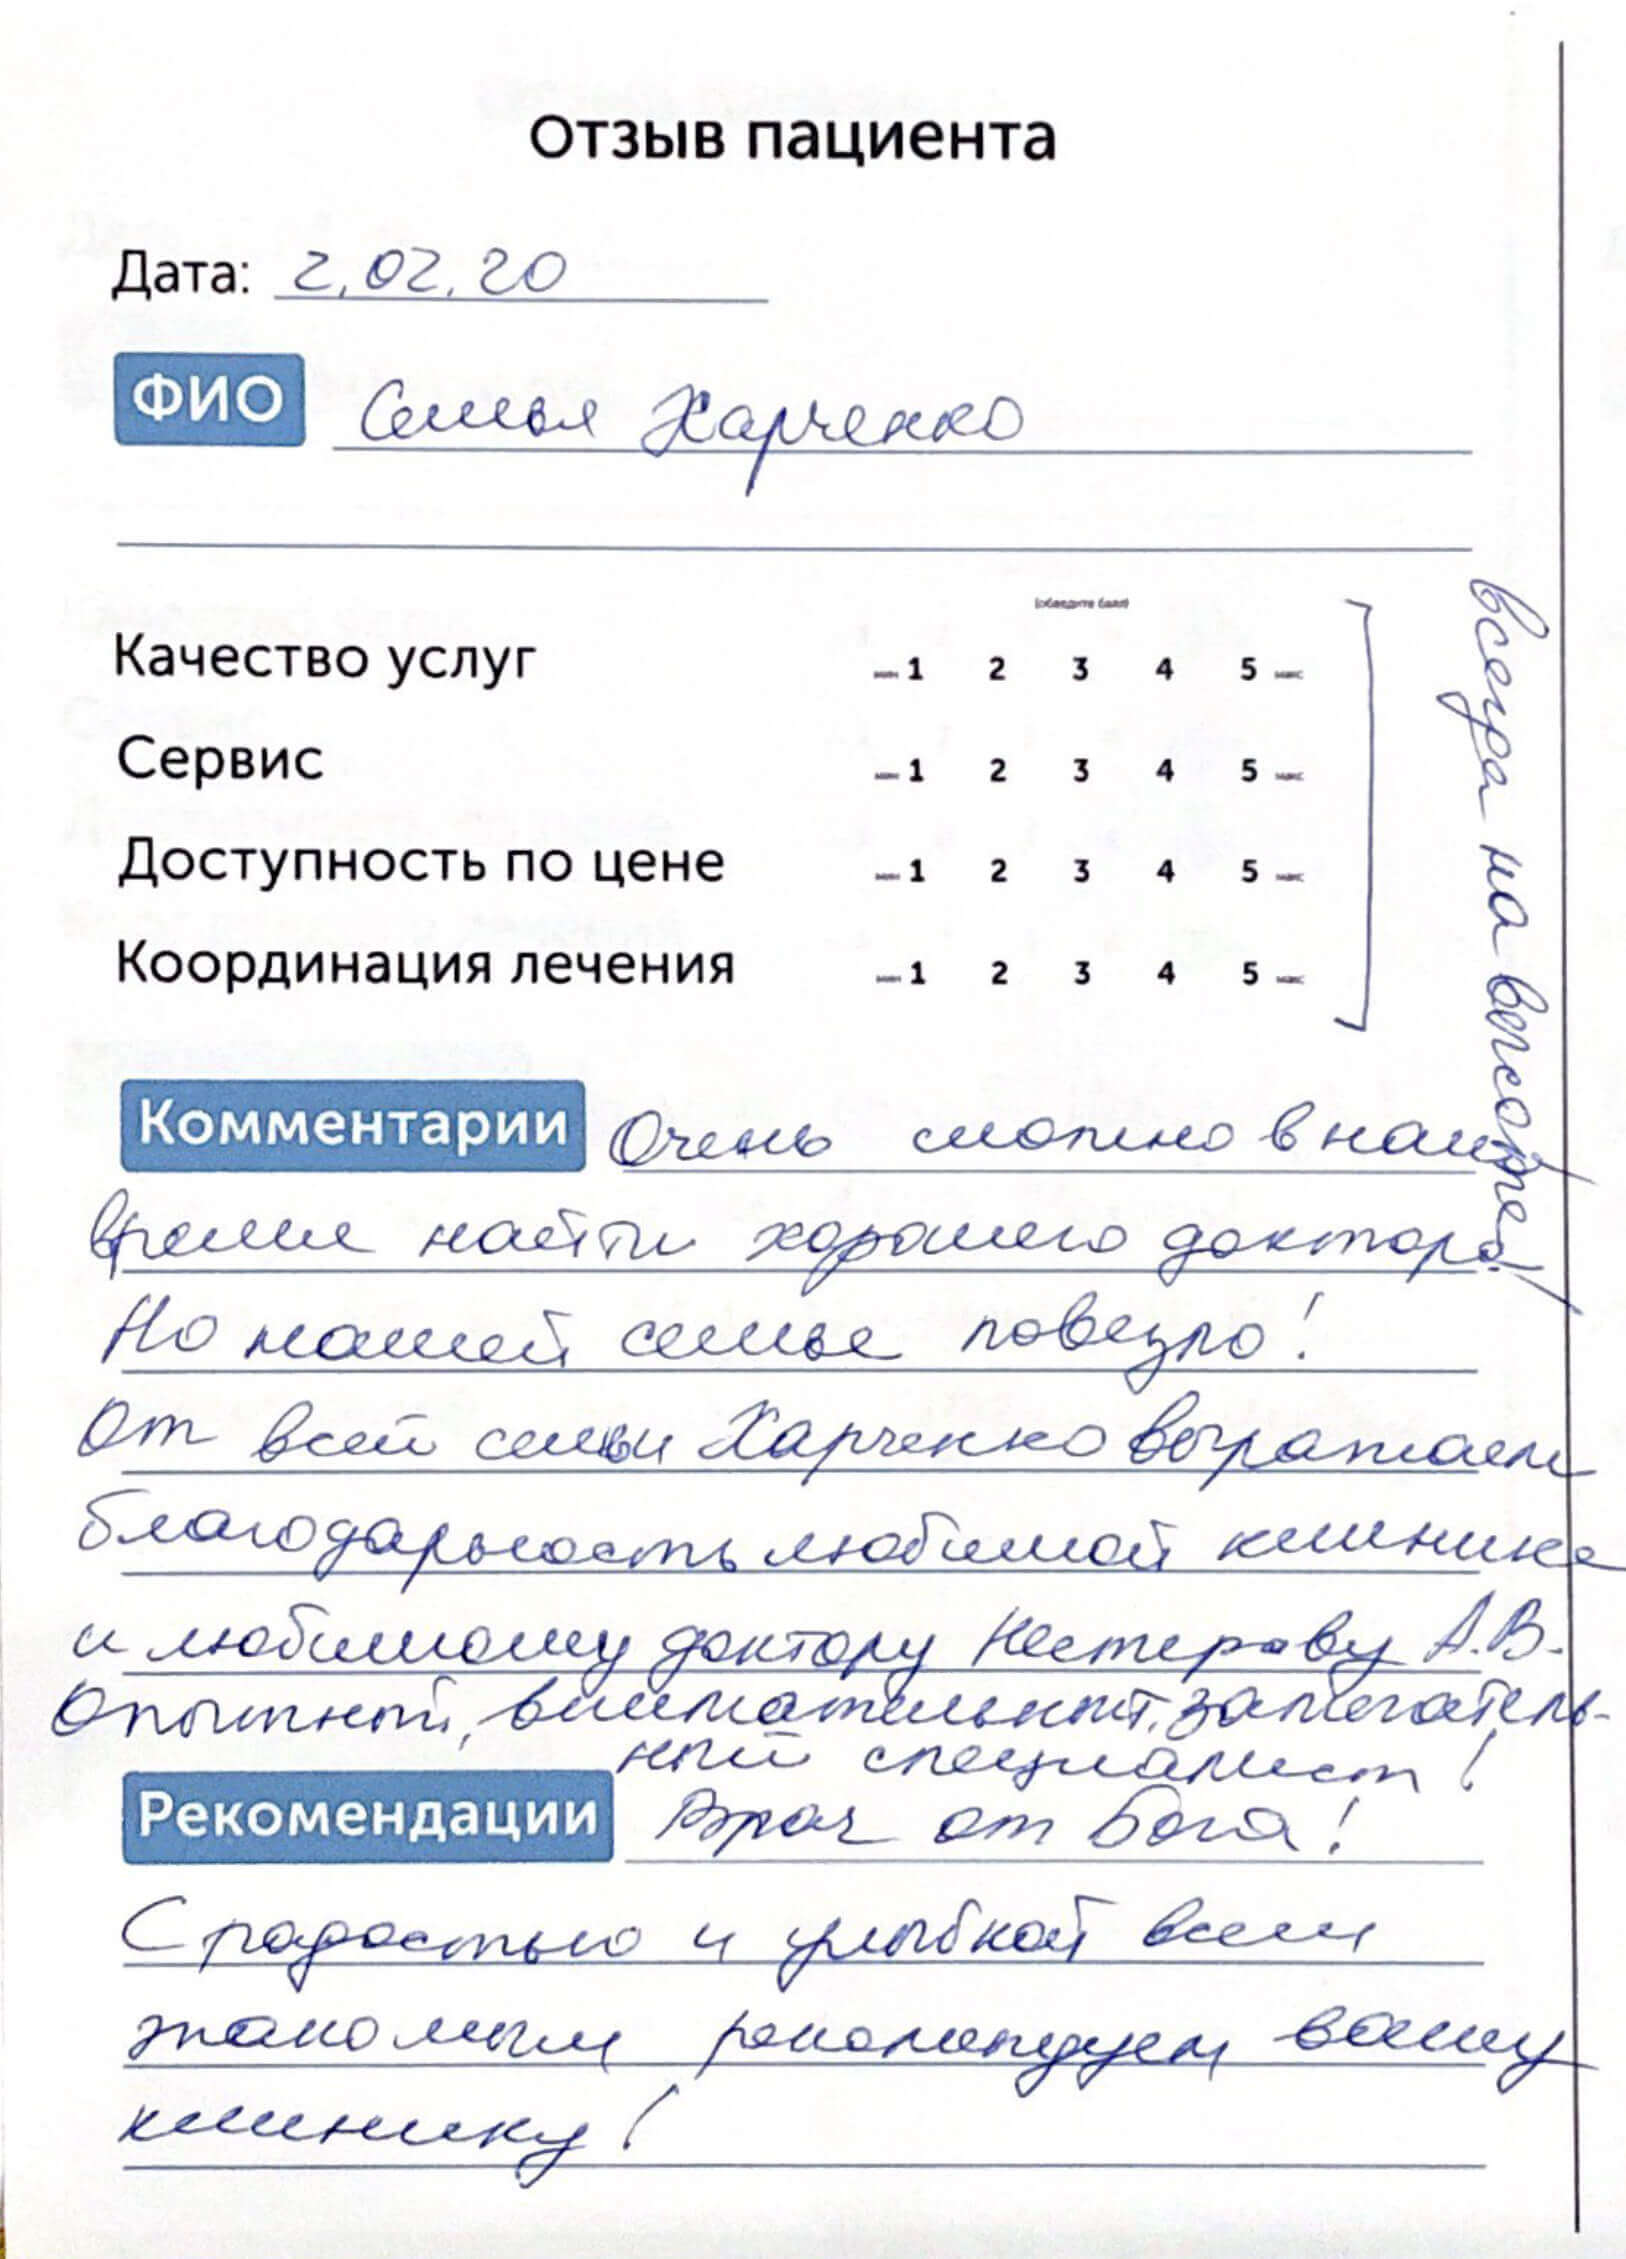 Отзыв пациента
Дата: 2.02.20
ФИО Семья Харченко
(обведите балл)
Качество услуг мин 1 2 3 4 5 макс
Сервис мин 1 2 3 4 5 макс
Доступность по цене мин 1 2 3 4 5 макс
Координация лечения мин 1 2 3 4 5 макс
всегда на высоте!
Комментарии Очень сложно в наше
время найти хорошего доктора!
Но нашей семье повезло!
От всей семьи Харченко выражаем
благодарность любимой клинике
и любимому доктору Нестерову А.В.
Опытный, внимательный, замечатель-
ный специалист!
Рекомендации Врач от Бога!
С радостью и улыбкой всем
знакомым рекомендуем вашу
клинику!